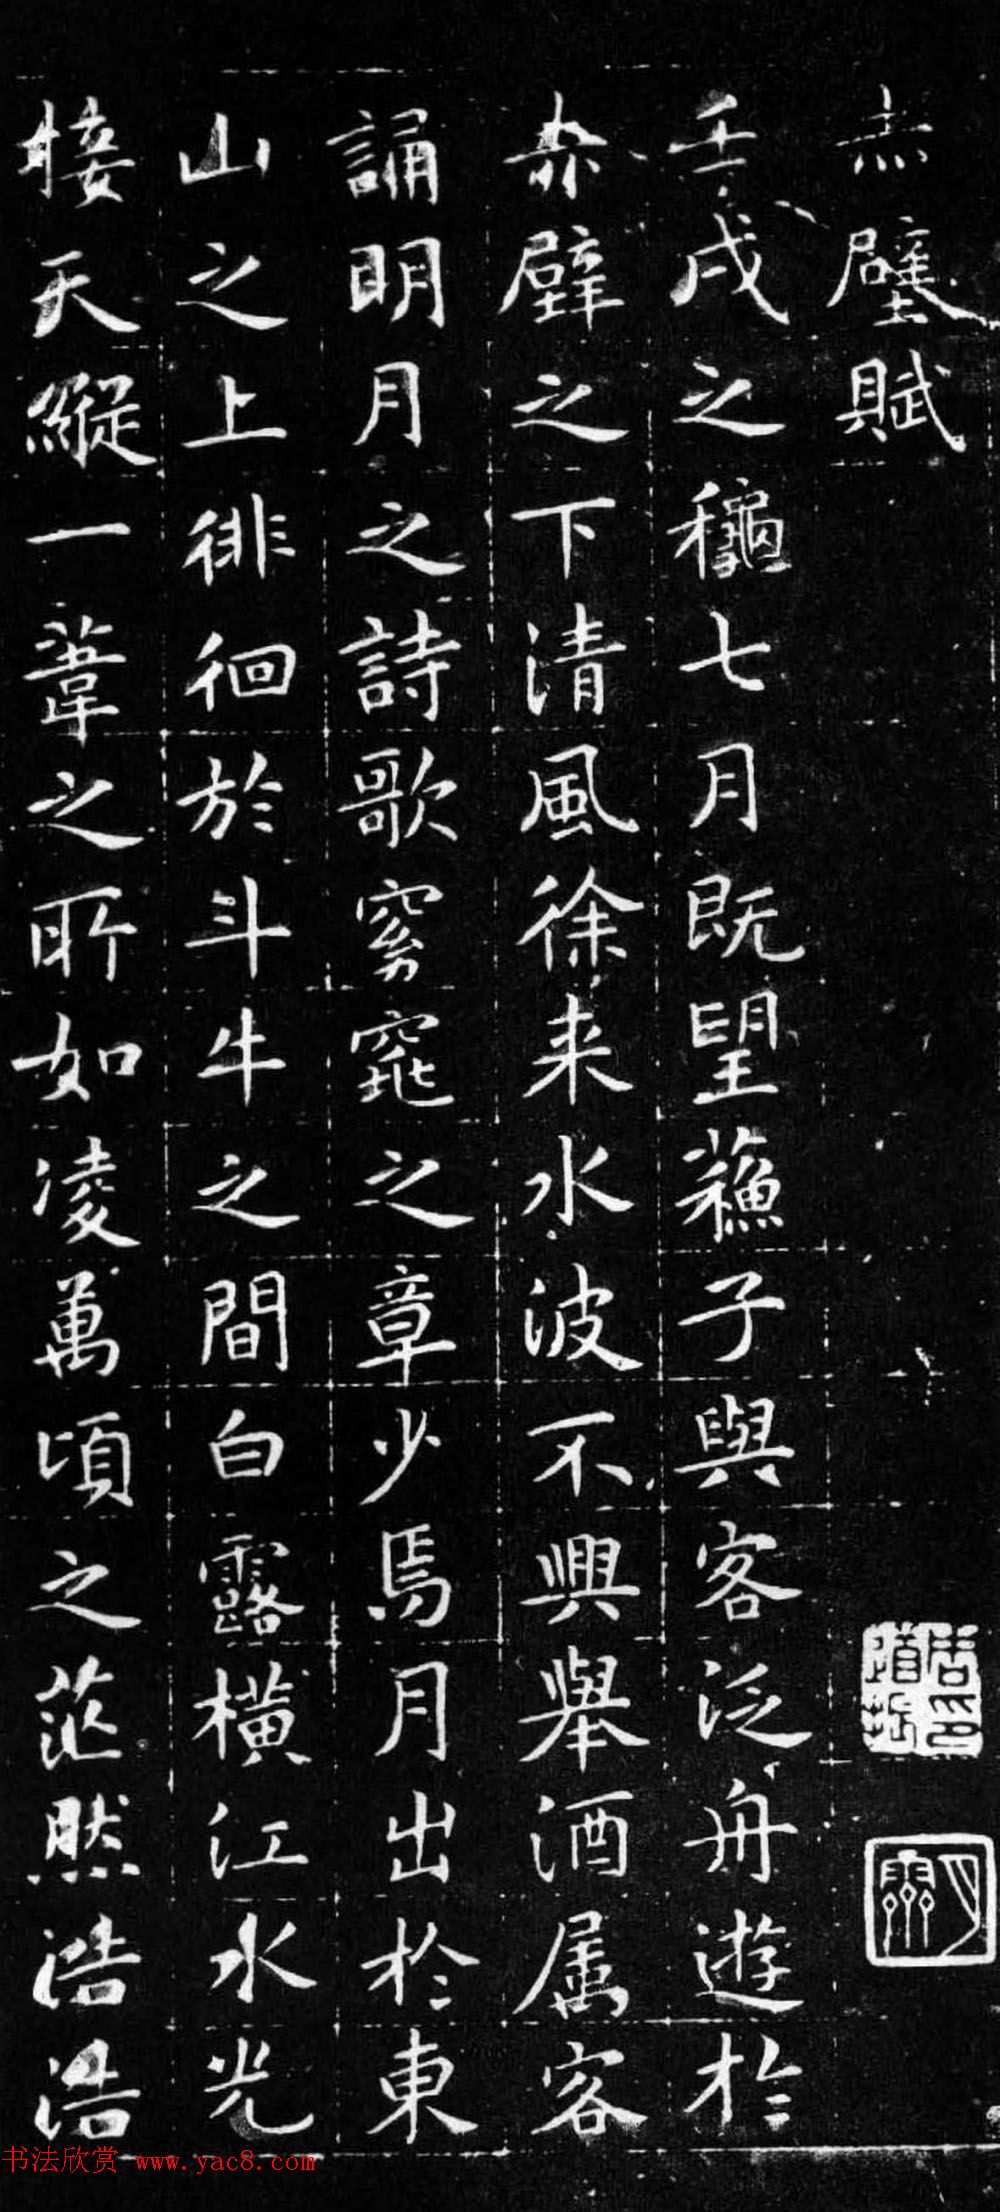 赤壁賦
壬戌之龝七月既望蘓子與客泛舟遊於
赤壁之下清風徐来水波不興舉酒属客
誦明月之詩歌窈窕之章少焉月出於東
山之上徘徊於斗牛之間白露橫江水光
接天縱一葦之所如凌萬頃之茫然浩浩
书法欣赏 www.yac8.com